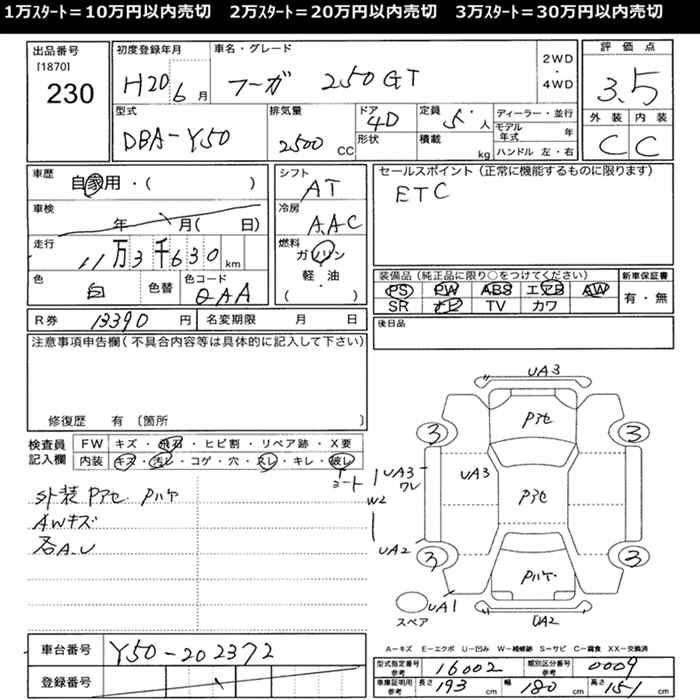 1万スタート＝10万円以内売切　2万スタート＝20万円以内売切　3万スタート＝30万円以内売切
出品番号
[1870]
230
初度登録年月
H20 6月
車名・グレード
フーガ 250GT
2WD
・
4WD
評価点
3.5
外装 内装
C C
型式
DBA-Y50
排気量
2500 CC
ドア
4D
形状
定員
5人
積載
kg
ディーラー・並行
モデル年式 年
ハンドル 左・右
車歴
自家用・( )
車検
年 月( 日)
走行
11万3千630km
色
白 色替
色コード
QAA
シフト
AT
冷房
AAC
燃料
ガソリン
軽・油
( )
セールスポイント（正常に機能するものに限ります）
ETC
装備品（純正品に限り○をつけてください）
PS PW ABS エアB AW
SR ナビ TV カワ
新車保証書
有・無
R券 13390 円
名変期限 月 日
後日品
注意事項申告欄（不具合内容等は具体的に記入して下さい）
修復歴 有〔箇所 〕
検査員
記入欄
FW キズ・飛石・ヒビ割・リペア跡・X要
内装 キズ・汚レ・コゲ・穴・スレ・キレ・破レ
シート
外装 Pアセ Pハケ
AWキズ
各A.U
UA3
Pアセ
3 3
UA3
ワレ
UA3
W2
Pアセ
UA2
3 3
Pハケ
スペア
UA1
UA2
A－キズ E－エクボ U－凹み W－補修跡 S－サビ C－腐食 XX－交換済
車台番号 Y50-202372
登録番号
型式指定番号
参考
16002
類別区分番号
参考
0009
車庫証明用
参考
長さ 493 cm 幅 180 cm 高さ 151 cm